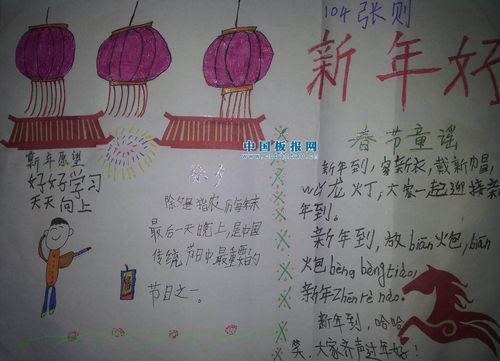 104 张则
新年好
中国板报网
新年愿望
好好学习
天天向上
除夕
除夕是指农历每年末
最后一天晚上,是中国
传统节日中最重要的
节日之一。
春节童谣
新年到,穿新衣,戴新帽,
龙灯,大家一起迎接新
年到。
新年到,放biān火包,biān
火包bèng bèng tiào,
新年zhēn rè nao。
新年到,哈哈
笑,大家齐声过年好!